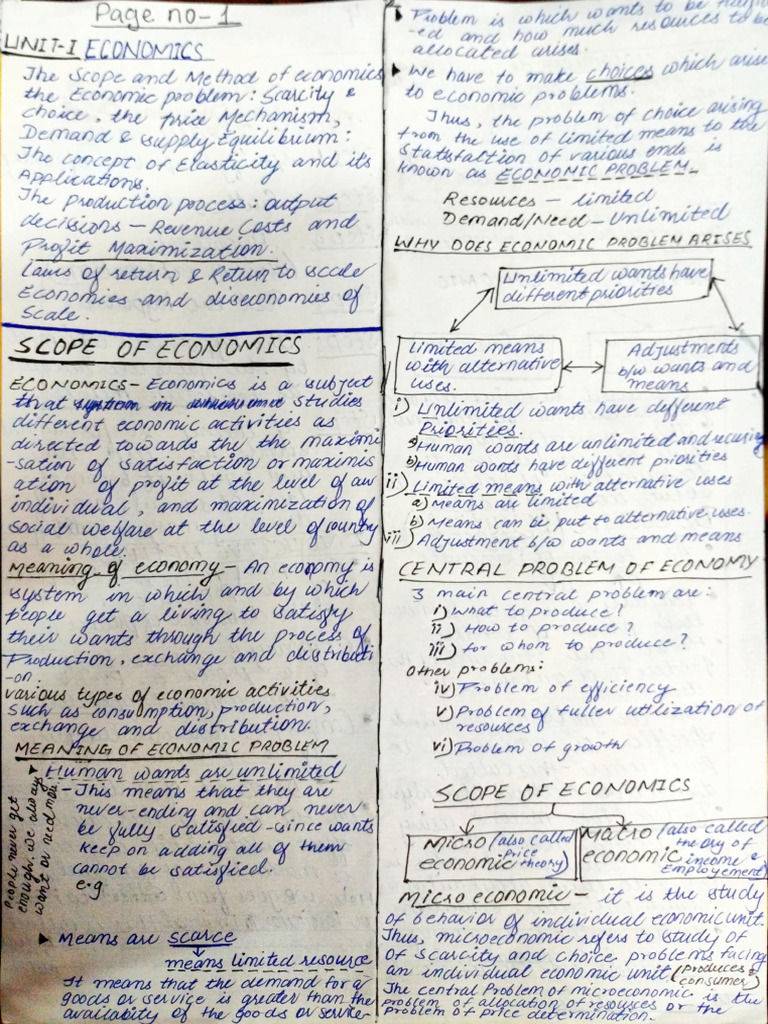 Page no-1
UNIT-I ECONOMICS
The Scope and Method of economics
the Economic problem: Scarcity &
choice, the Price Mechanism,
Demand & supply Equilibrium:
The concept of Elasticity and its
Applications.
The production process: output
decisions - Revenue Costs and
Profit Maximization.
Laws of return & Return to scale
Economies and diseconomies of
Scale.
SCOPE OF ECONOMICS
ECONOMICS - Economics is a subject
that studies
different economic activities as
directed towards the the maximi
-sation of satisfaction or maximis
ation of profit at the level of an
individual, and maximization of
social welfare at the level of country
as a whole.
Meaning of economy - An economy is
system in which and by which
people get a living to satisfy
their wants through the process of
Production, exchange and distributi
-on.
various types of economic activities
such as consumption, production,
exchange and distribution.
MEANING OF ECONOMIC PROBLEM
Human wants are unlimited
- This means that they are
never-ending and can never
be fully satisfied - since wants
keep on adding all of them
cannot be satisfied.
e.g
People never get
enough. we always
want or need more
Means are scarce
means limited resource
It means that the demand for a
goods or service is greater than the
availability of the goods or service
Problem is which wants to be
-ed and how much resources to be
allocated arises.
We have to make choices which arise
to economic problems.
Thus, the problem of choice arising
from the use of limited means to the
Statsfaltion of various ends is
known as ECONOMIC PROBLEM.
Resources - limited
Demand/Need - Unlimited
WHY DOES ECONOMIC PROBLEM ARISES
Unlimited wants have
different priorities
Limited means
with alternative
uses.
Adjustments
b/w wants and
means
i) Unlimited wants have different
Priorities.
a) Human wants are unlimited and recurring
b) Human wants have different priorities
ii) Limited means with alternative uses
a) Means are limited
b) Means can be put to alternative uses.
iii) Adjustment b/w wants and means
CENTRAL PROBLEM OF ECONOMY
3 main central problem are:
i) What to produce?
ii) How to produce?
iii) for whom to produce?
Other problems:
iv) Problem of efficiency
v) Problem of fuller utilization of
resources
vi) Problem of growth
SCOPE OF ECONOMICS
Micro (also called
economic price
theory)
Macro (also called
economic theory of
income &
Employement)
Micro economic - it is the study
of behavior of individual economic unit.
Thus, microeconomic refers to study of
of scarcity and choice problems facing
an individual economic unit (produces &
consumer)
The central Problem of microeconomic is the
problem of allocation of resources or the
Problem of price determination.